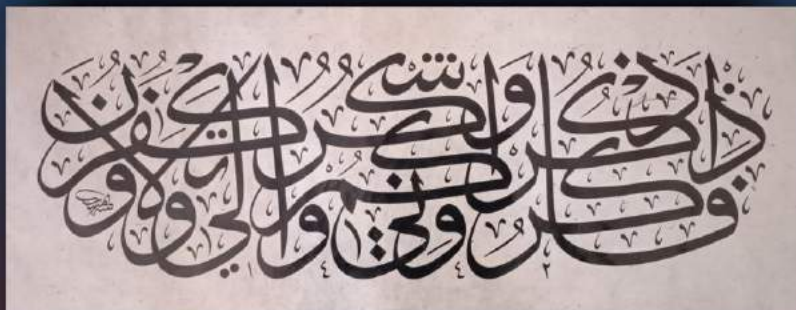 فَاذْكُرُونِي أَذْكُرْكُمْ وَاشْكُرُوا لِي وَلَا تَكْفُرُونِ
١٤٤٢